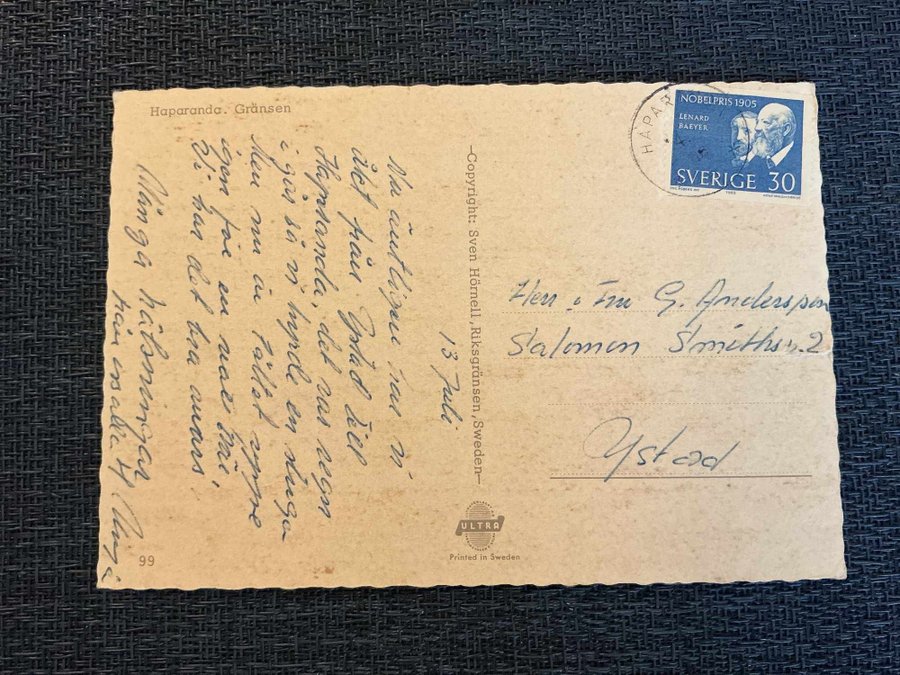 Haparanda. Gränsen
13 Juli
Nu äntligen har vi
åkt från Ystad till
Haparanda, det var regn
i går så vi hyrde en stuga
Men nu är tältet uppe
igen för en
Vi har det bra
Många hälsningar
från
99
—Copyright: Sven Hörnell, Riksgränsen, Sweden—
ULTRA
Printed in Sweden
HAPAR
NOBELPRIS 1905
LENARD
BAEYER
SVERIGE 30
Herr o Fru G. Andersson
Salomon Smiths v. 2
Ystad